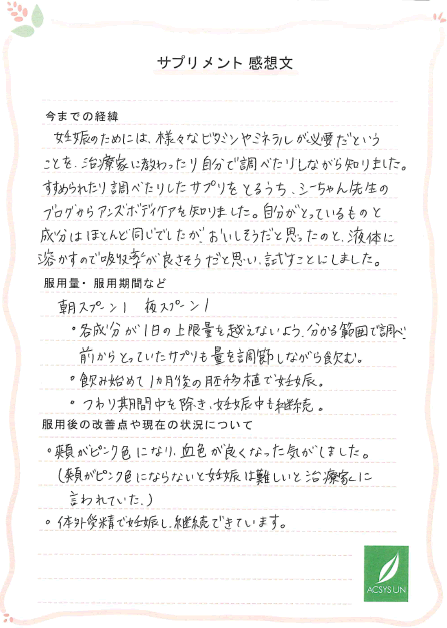 サプリメント 感想文
今までの経緯
妊娠のためには、様々なビタミンやミネラルが必要だという
ことを、治療家に教わったり自分で調べたりしながら知りました。
すすめられたり調べたりしたサプリをとるうち、シーちゃん先生の
ブログからアンズボディケアを知りました。自分がとっているものと
成分はほとんど同じでしたが、おいしそうだと思ったのと、液体に
溶かすので吸収率が良さそうだと思い、試すことにしました。
服用量・服用期間など
朝スプーン1 夜スプーン1
・各成分が1日の上限量を越えないよう、分かる範囲で調べ、
前からとっていたサプリも量を調節しながら飲む。
・飲み始めて1カ月後の胚移植で妊娠。
・つわり期間中を除き、妊娠中も継続。
服用後の改善点や現在の状況について
・頬がピンク色になり、血色が良くなった気がしました。
(頬がピンク色にならないと妊娠は難しいと治療家に
言われていた。)
・体外受精で妊娠し、継続できています。
ACSYS UN